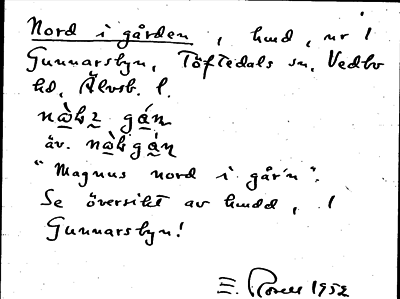 Nord i gården, hmd, nr 1
Gunnarsbyn, Töftedals sn, Vedbo
hd, Älvsb. l.
gán
äv.
"Magnus nord i går'n".
Se översikt av hmdd, i
Gunnarsbyn!
E. 1952